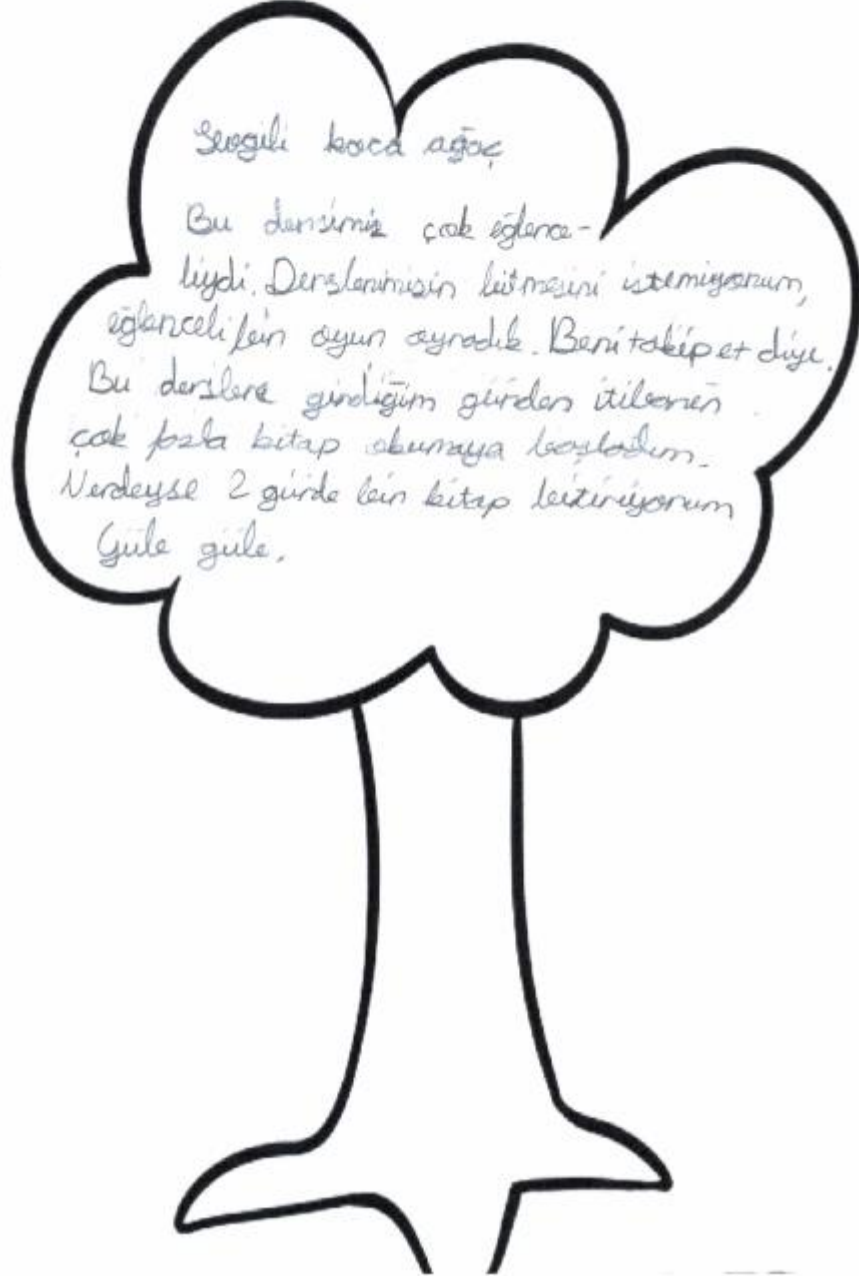 Sevgili koca ağaç
Bu dersimiz çok eğlence-
liydi. Derslerimizin bitmesini istemiyorum,
eğlenceli bir oyun oynadık. Beni takip et diye.
Bu derslere girdiğim günden itibaren
çok fazla kitap okumaya başladım.
Nerdeyse 2 günde bir kitap bitiriyorum
Güle güle.